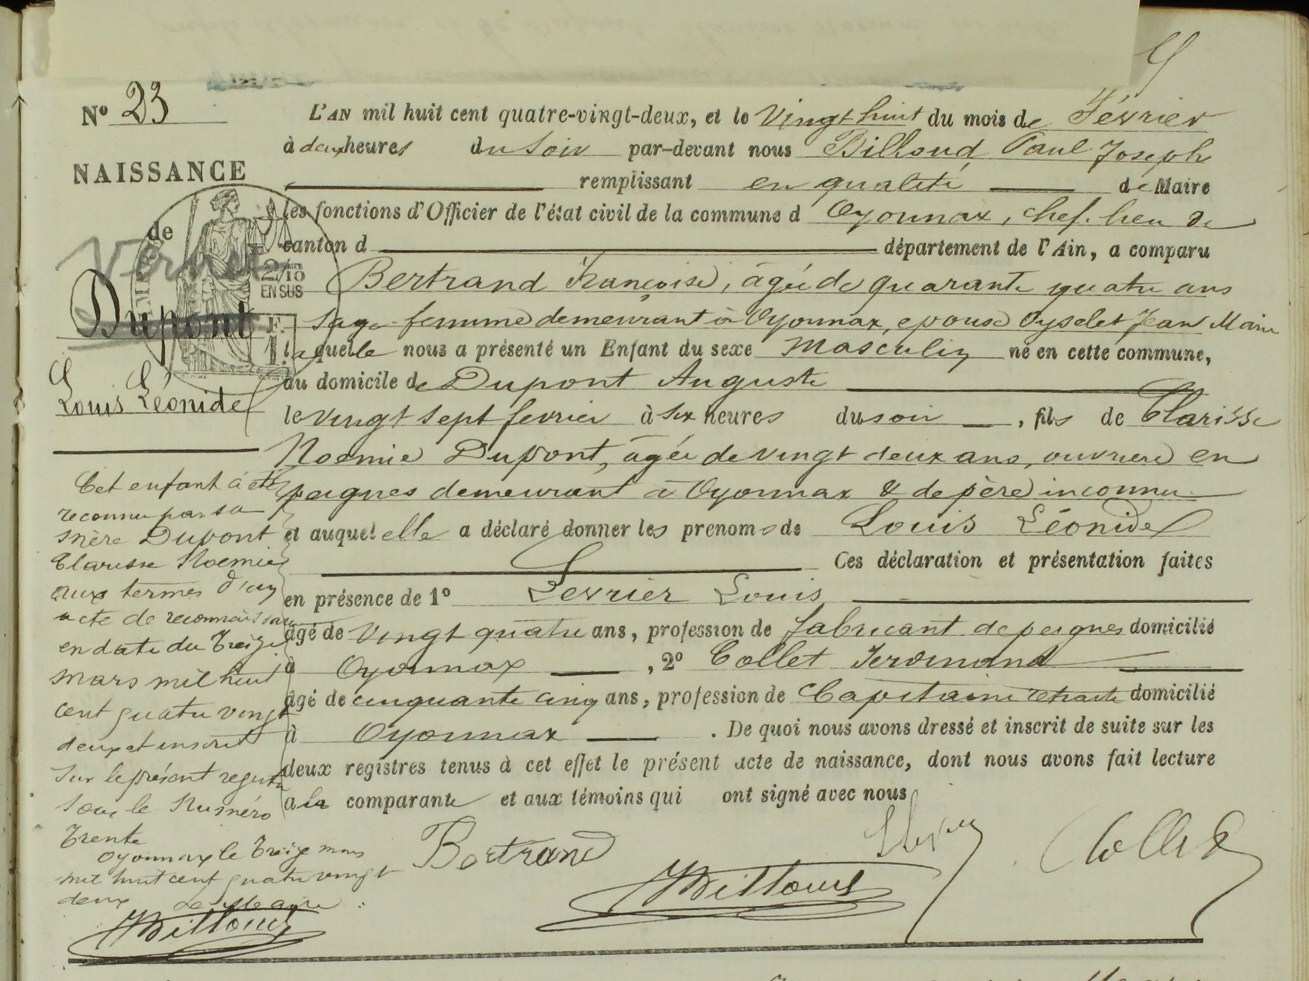 N° 23
NAISSANCE
de
Dupont
Louis Léonide
L'AN mil huit cent quatre-vingt-deux, et le Vingt huit du mois de Février
à deux heures du Soir par-devant nous Billoud Paul Joseph
remplissant en qualité de Maire
les fonctions d'Officier de l'état civil de la commune d Oyonnax, chef-lieu de
canton d département de l'Ain, a comparu
Bertrand Françoise, âgée de quarante quatre ans
Sage-femme demeurant à Oyonnax, épouse Jean Marie
laquelle nous a présenté un Enfant du sexe Masculin né en cette commune,
au domicile de Dupont Auguste
le vingt sept fevrier à six heures du soir, fils de Clarisse
Noemie Dupont, âgée de vingt deux ans, ouvrière en
peignes demeurant à Oyonnax & de père inconnu
et auquel elle a déclaré donner les prenoms de Louis Léonide
Ces déclaration et présentation faites
en présence de 1° Levrier Louis
âgé de vingt quatre ans, profession de fabricant de peignes domicilié
à Oyonnax, 2° Collet Ferdinand
âgé de cinquante cinq ans, profession de Capitaine retraité domicilié
à Oyonnax. De quoi nous avons dressé et inscrit de suite sur les
deux registres tenus à cet effet le présent acte de naissance, dont nous avons fait lecture
a la comparante et aux témoins qui ont signé avec nous
Bertrand
Billoud
Collet
Cet enfant à été
reconnu par sa
mère Dupont
Clarisse Noemie
aux termes d'un
acte de reconnaissance
en date du Treize
mars mil huit
cent quatre vingt
deux et inscrit
Sur le présent registre
Sous le Numéro
Trente
Oyonnax le Treize mars
mil huit cent quatre vingt
deux Le Maire
Billoud
2/10
EN SUS